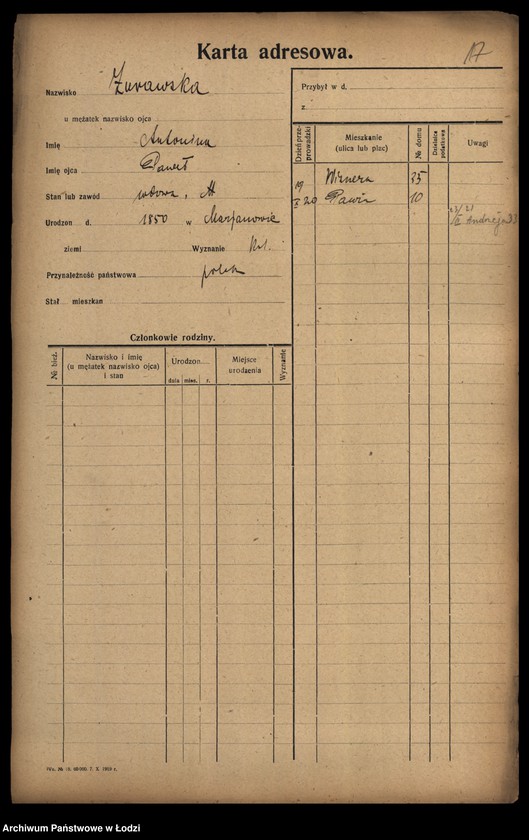 Karta adresowa.
17
Nazwisko Żurawska
u mężatek nazwisko ojca
Imię Antonina
Imię ojca Paweł
Stan lub zawód wdowa,
Urodzon d. 1850 w
ziemi Wyznanie
Przynależność państwowa polsk
Stał mieszkan
Przybył w d.
z
Dzień przeprowadzki
Mieszkanie
(ulica lub plac)
№ domu
Dzielnica podatkowa
Uwagi
Wiznera 35
19/X 20 Pawia 10
23/21
Andrzeja 33
Członkowie rodziny.
№ bież.
Nazwisko i imię
(u mężatek nazwisko ojca)
i stan
Urodzon
dnia mies. r.
Miejsce
urodzenia
Wyznanie
7. X. 1919 r.
Archiwum Państwowe w Łodzi